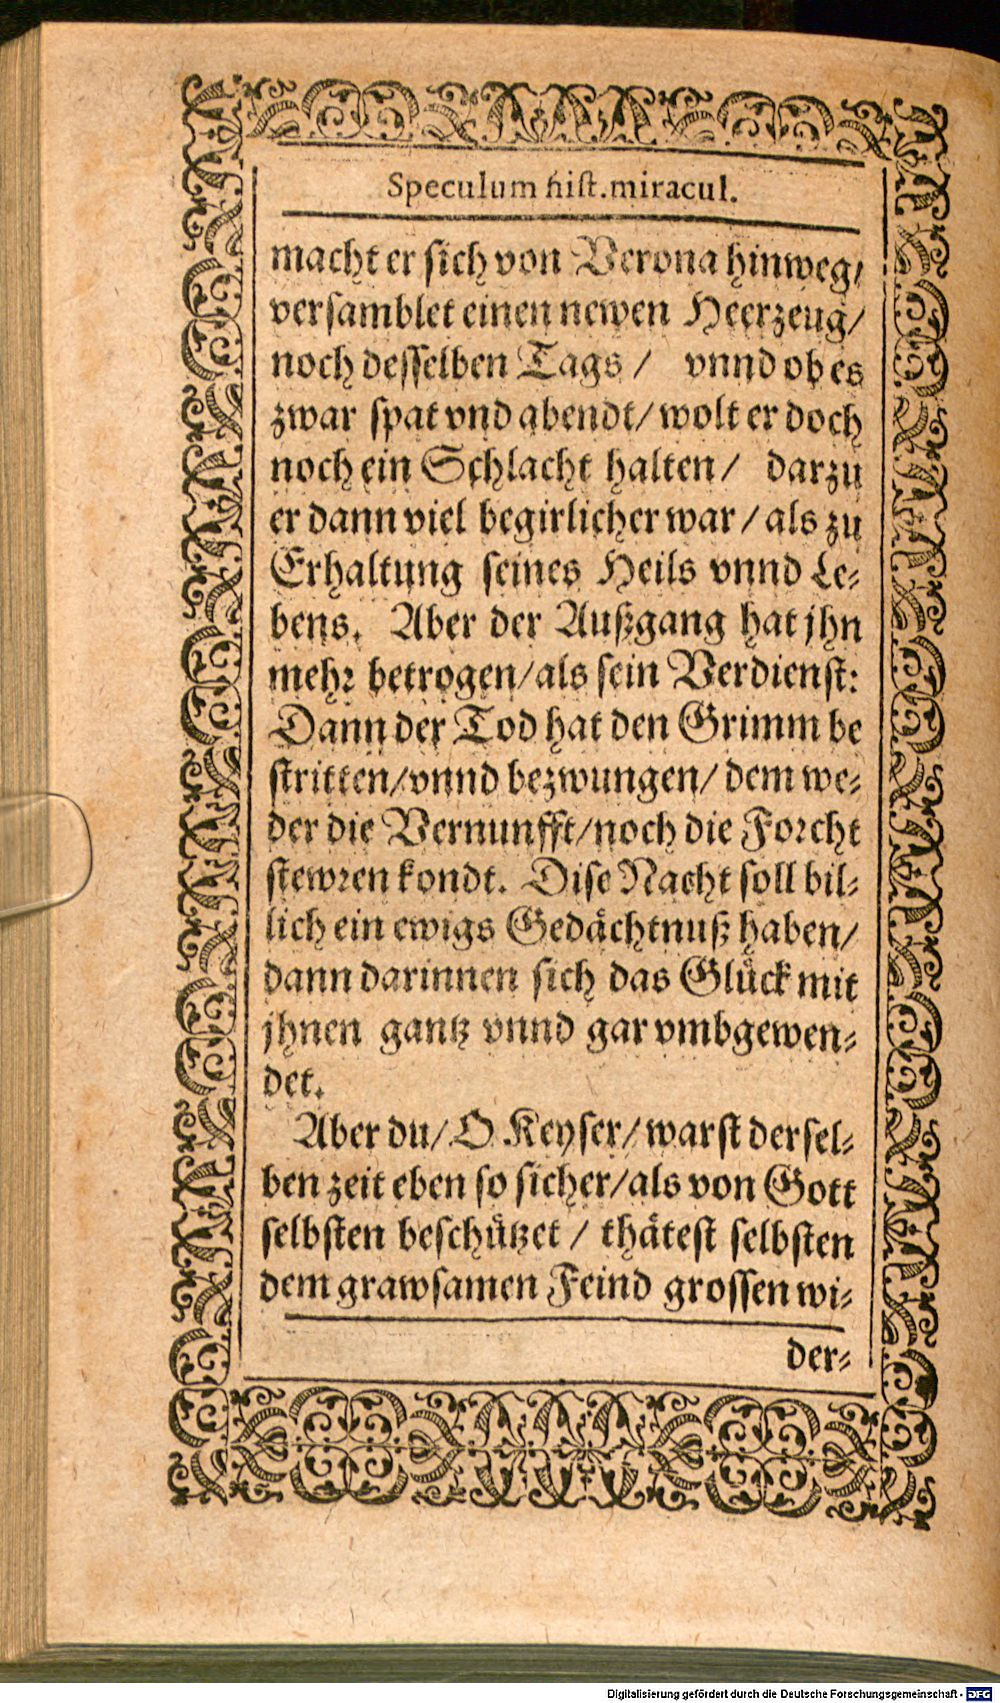 Speculum hist. miracul.
macht er sich von Verona hinweg/
versamblet einen newen Heerzeug/
noch desselben Tags / vnnd ob es
zwar spat vnd abendt/ wolt er doch
noch ein Schlacht halten / darzu
er dann viel begirlicher war / als zu
Erhaltung seines Heils vnnd Le-
bens. Aber der Außgang hat jhn
mehr betrogen/als sein Verdienst:
Dann der Tod hat den Grimm be
stritten/vnnd bezwungen/ dem we-
der die Vernunfft/noch die Forcht
stewren kondt. Dise Nacht soll bil-
lich ein ewigs Gedächtnuß haben/
dann darinnen sich das Glück mit
jhnen gantz vnnd gar vmbgewen-
det.
Aber du/ O Keyser/ warst dersel-
ben zeit eben so sicher/als von Gott
selbsten beschützet / thätest selbsten
dem grawsamen Feind grossen wi-
der-
Digitalisierung gefördert durch die Deutsche Forschungsgemeinschaft - DFG